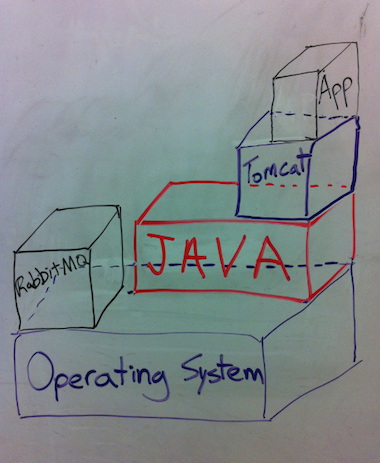 App
Tomcat
JAVA
RabbitMQ
Operating System